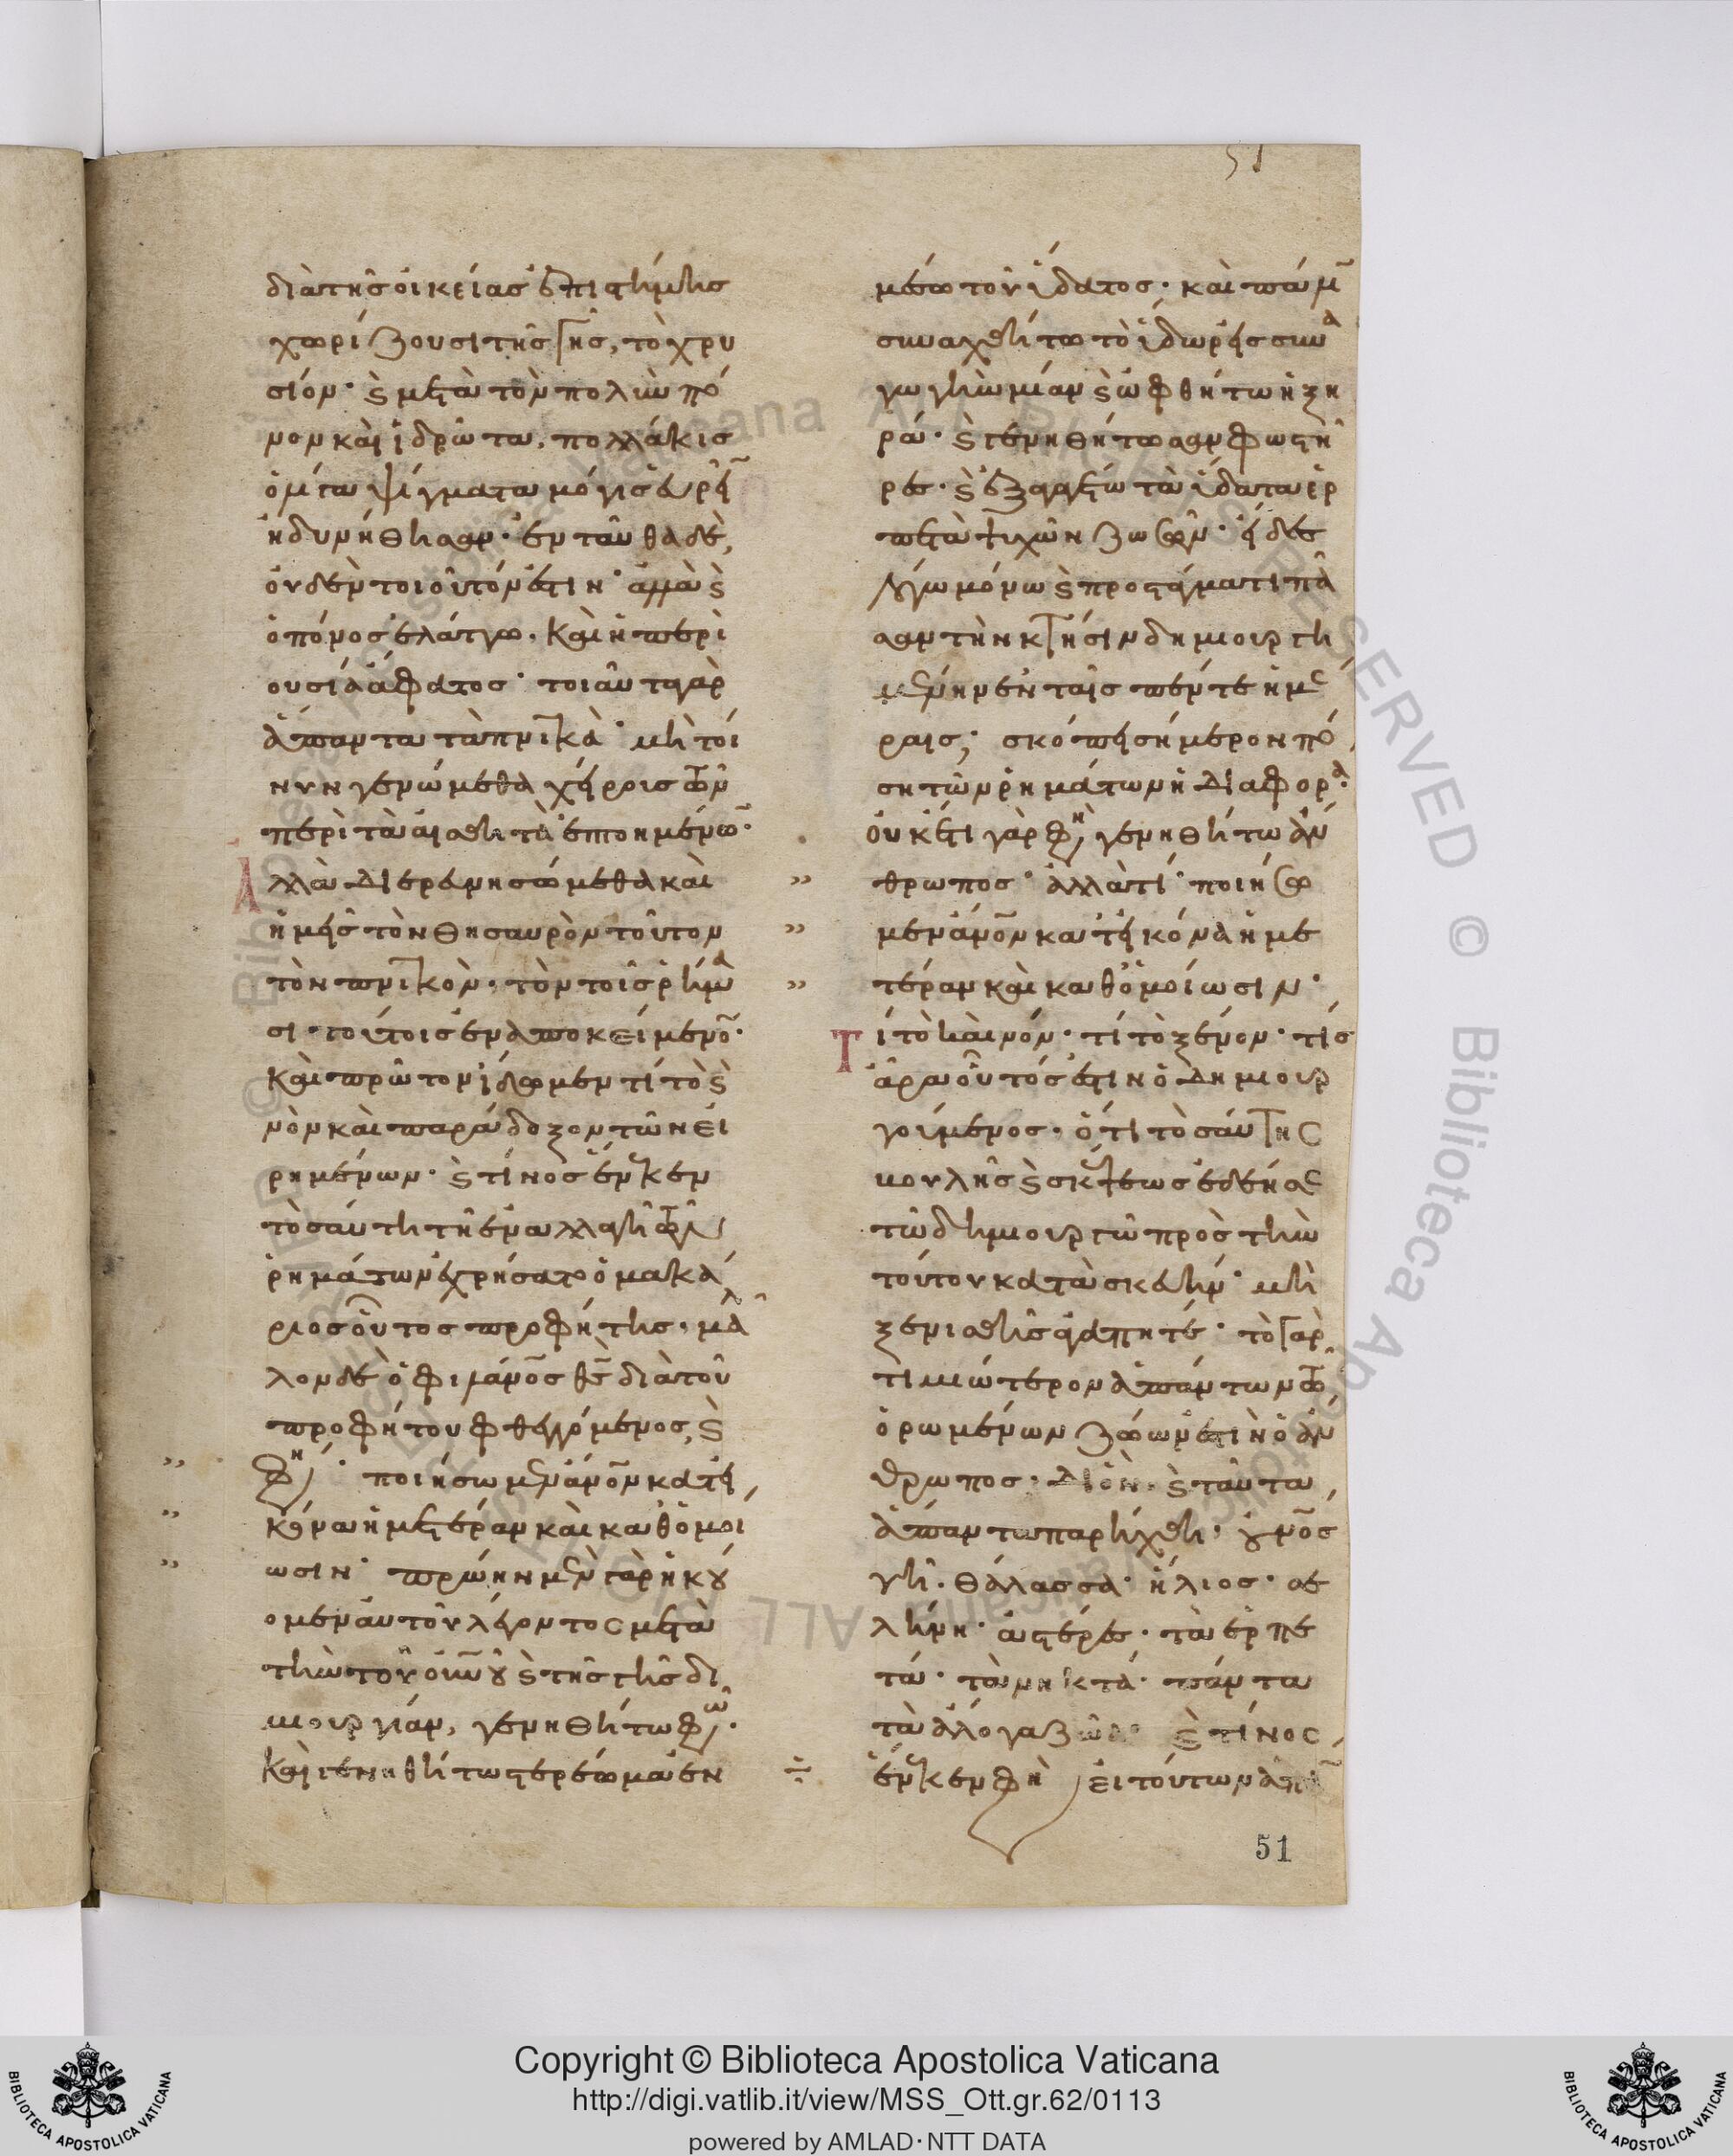 51
διὰ τῆς οἰκείας ἐπιστήμης
χωρίζουσι τῆς γῆς, τὸ χρυ
σίον· ϗ μετὰ τὸν πολὺν πό
νον καὶ ἱδρῶτα, πολλάκις
ὀλίγα ψίγματα μόγις εὑρεῖ̅
ἠδυνήθησαν· ἐνταῦθα δὲ,
οὐδὲν τοιοῦτόν ἐστιν· ἀλλὰ ϗ
ὁ πόνος ἐλάττω. καὶ ἡ περι
ουσία ἄφατος· τοιαῦτα γὰρ
ἅπαντα τὰ πν̅ικὰ· μὴ τοί
νυν γενώμεθα χείρους τῶν
περὶ τὰ αἰσθητὰ ἐπτοημένω̅·
Ἀλλὰ διερευνησώμεθα καὶ
ἡμεῖς τὸν θησαυρὸν τοῦτον
τὸν πν̅ικὸν. τὸν τοῖς ῥήμα
σι τούτοις ἐναποκείμενο̅·
καὶ πρῶτον ἴδωμεν τί τὸ ϗ
νὸν καὶ παράδοξον τῶν εἰ
ρημένων· ϗ τίνος ἕνεκεν
τοσαύτη τῇ ἐναλλαγῇ τῶν
ῥημάτων ἐχρήσατο ὁ μακά
ριος οὗτος προφήτης, μᾶλ
λον δὲ ὁ φιλάν̅ος θς̅ διὰ τοῦ
προφήτου φθεγγόμενος, ϗ
φη· ποιήσωμεν ἄν̅ον κατ' εἰ
κόνα ἡμετέραν καὶ καθ' ὁμοί
ωσιν· πρώην μὲν γὰρ ἠκού
ομεν αὐτοῦ λέγοντος μετὰ
τὴν τοῦ οὐν̅ου ϗ τῆς γῆς δη
μιουργίαν, γενηθήτω φῶ·
καὶ γενηθήτω στερέωμα ἐν
μέσω τοῦ ὕδατος· καὶ πάλ̅
συναχθήτω τὸ ὕδωρ εἰς συνα
γωγὴν μίαν ϗ ὀφθήτω ἡ ξη
ρά· ϗ γενηθήτωσαν φωστῆ
ρες· ϗ ἐξαγαγέτω τὰ ὕδατα ἑρ
πετὰ ψυχῶν ζωσῶν· εἶδες
λόγω μόνω ϗ προστάγματι πᾶ
σαν τὴν κτῆσιν δημιουργη
μένην ἐν ταῖς πέντε ἡμέ
ραις; σκόπει σήμερον πό
ση τῶν ῥημάτων ἡ διαφορά·
οὐκέτι γὰρ φη γενηθήτω ἄν
θρωπος· ἀλλὰ τί· ποιήσω
μεν ἄν̅ον κατ' εἰκόνα ἡμε
τέραν καὶ καθ' ὁμοίωσιν·
Τί τὸ καινόν· τί τὸ ξένον· τίς
ἆρα οὗτός ἐστιν ὁ δημιουρ
γούμενος· ὅτι τοσαύτης
βουλῆς ϗ σκέψεως ἐδέησε
τῶ δημιουργῶ πρὸς τὴν
τούτου κατασκευήν· μὴ
ξενισθῆς ἀγαπητέ· τὸ γὰρ
τιμιώτερον ἁπάντων τῶν
ὁρωμένων ζώων ἐστὶν ὁ ἄν
θρωπος· δι' ὃν ϗ ταῦτα
ἅπαντα παρήχθη· οὐνο̅ς
γῆ· θάλασσα· ἥλιος· σε
λήνη· ἀστέρες· τὰ ἑρπε
τά· τὰ νηκτά· πάντα
τὰ ἄλογα ζῶα ϗ τίνος
ἕνεκεν φη εἰ τούτων ἁπά
51
Copyright © Biblioteca Apostolica Vaticana
http://digi.vatlib.it/view/MSS_Ott.gr.62/0113
powered by AMLAD·NTT DATA
BIBLIOTECA APOSTOLICA VATICANA
BIBLIOTECA APOSTOLICA VATICANA